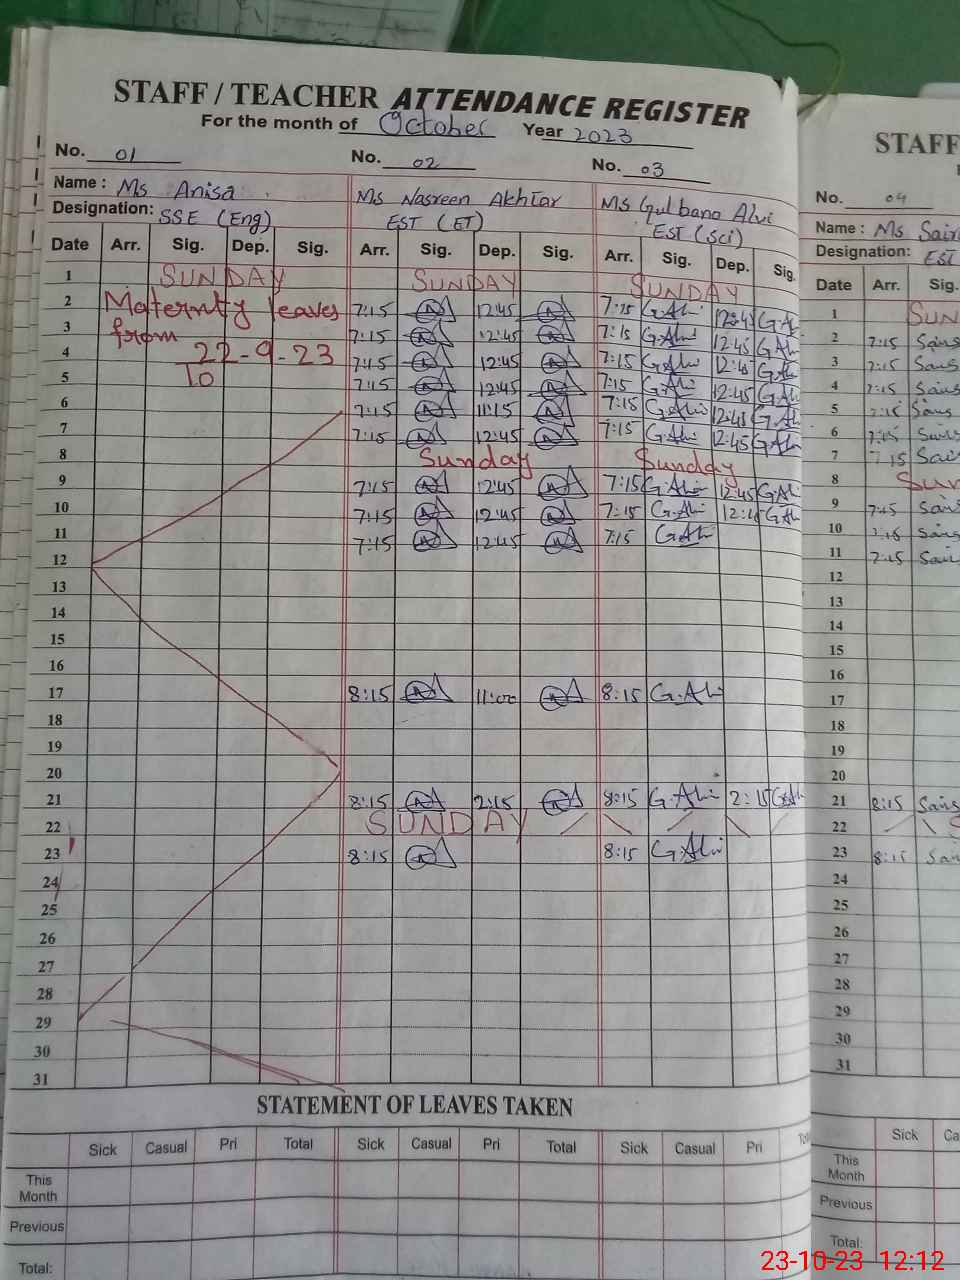 STAFF / TEACHER ATTENDANCE REGISTER
For the month of October Year 2023
No. 01 No. 02 No. 03
Name : Ms Anisa Ms Nasreen Akhtar Ms Gulbano Alvi
Designation: SSE (Eng) EST (ET) EST (Sci)
Date Arr. Sig. Dep. Sig. Arr. Sig. Dep. Sig. Arr. Sig. Dep. Sig.
1 SUNDAY SUNDAY SUNDAY
2 Maternity leaves 7:15 12:45 7:15 G.Alvi 12:45 G.Al
3 from 7:15 12:45 7:15 G.Alvi 12:45 G.Alvi
4 22-9-23 7:15 12:45 7:15 G.Alvi 12:45 G.Al
5 To 7:15 12:45 7:15 G.Alvi 12:45 G.Al
6 7:15 11:15 7:15 G.Alvi 12:45 G.Al
7 7:15 12:45 7:15 G.Alvi 12:45 G.Al
8 Sunday Sunday
9 7:15 12:45 7:15 G.Alvi 12:45 G.Al
10 7:15 12:45 7:15 G.Alvi G.Al
11 7:15 12:45 7:15 G.Alvi
12
13
14
15
16
17 8:15 11:00 8:15 G.Alvi
18
19
20
21 8:15 2:15 8:15 G.Alvi 2:15 G.Alvi
22 SUNDAY
23 8:15 8:15 G.Alvi
24
25
26
27
28
29
30
31
STATEMENT OF LEAVES TAKEN
Sick Casual Pri Total Sick Casual Pri Total Sick Casual Pri
This Month
Previous
Total:
STAFF
No. 04
Name : Ms Sair
Designation: EST
Date Arr. Sig.
1 SUN
2 7:15
3 7:15
4 7:15
5 7:15
6 7:15
7 7:15
8 Sun
9 7:15
10 7:15
11 7:15
12
13
14
15
16
17
18
19
20
21 8:15
22
23 8:15
24
25
26
27
28
29
30
31
Sick Ca
This Month
Previous
Total:
23-10-23 12:12